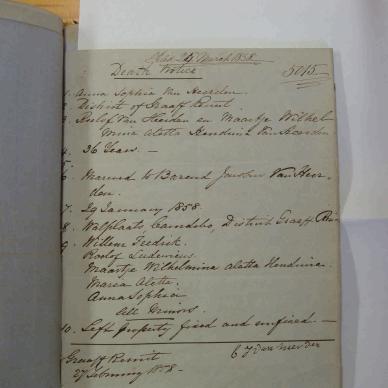 Filed 24 March 1858.
Death Notice
5015
1. Anna Sophia Van Heerden.
2. District of Graaff Reinet.
3. Roelof Van Heerden en Maartje Wilhel-
mina Aletta Hendrina Van Heerden
4. 36 Years. —
5.
6. Married to Barend Van Heer-
den.
7. 29 January 1858.
8. District Graaff Rei-
9. Willem Fredrik.
Roelof Ludovicus.
Maartje Wilhelmina Aletta Hendrina.
Maria Aletta.
Anna Sophia
All Minors.
10. Left property fixed and unfixed. —
Graaff Reinet
27 February 1858 -